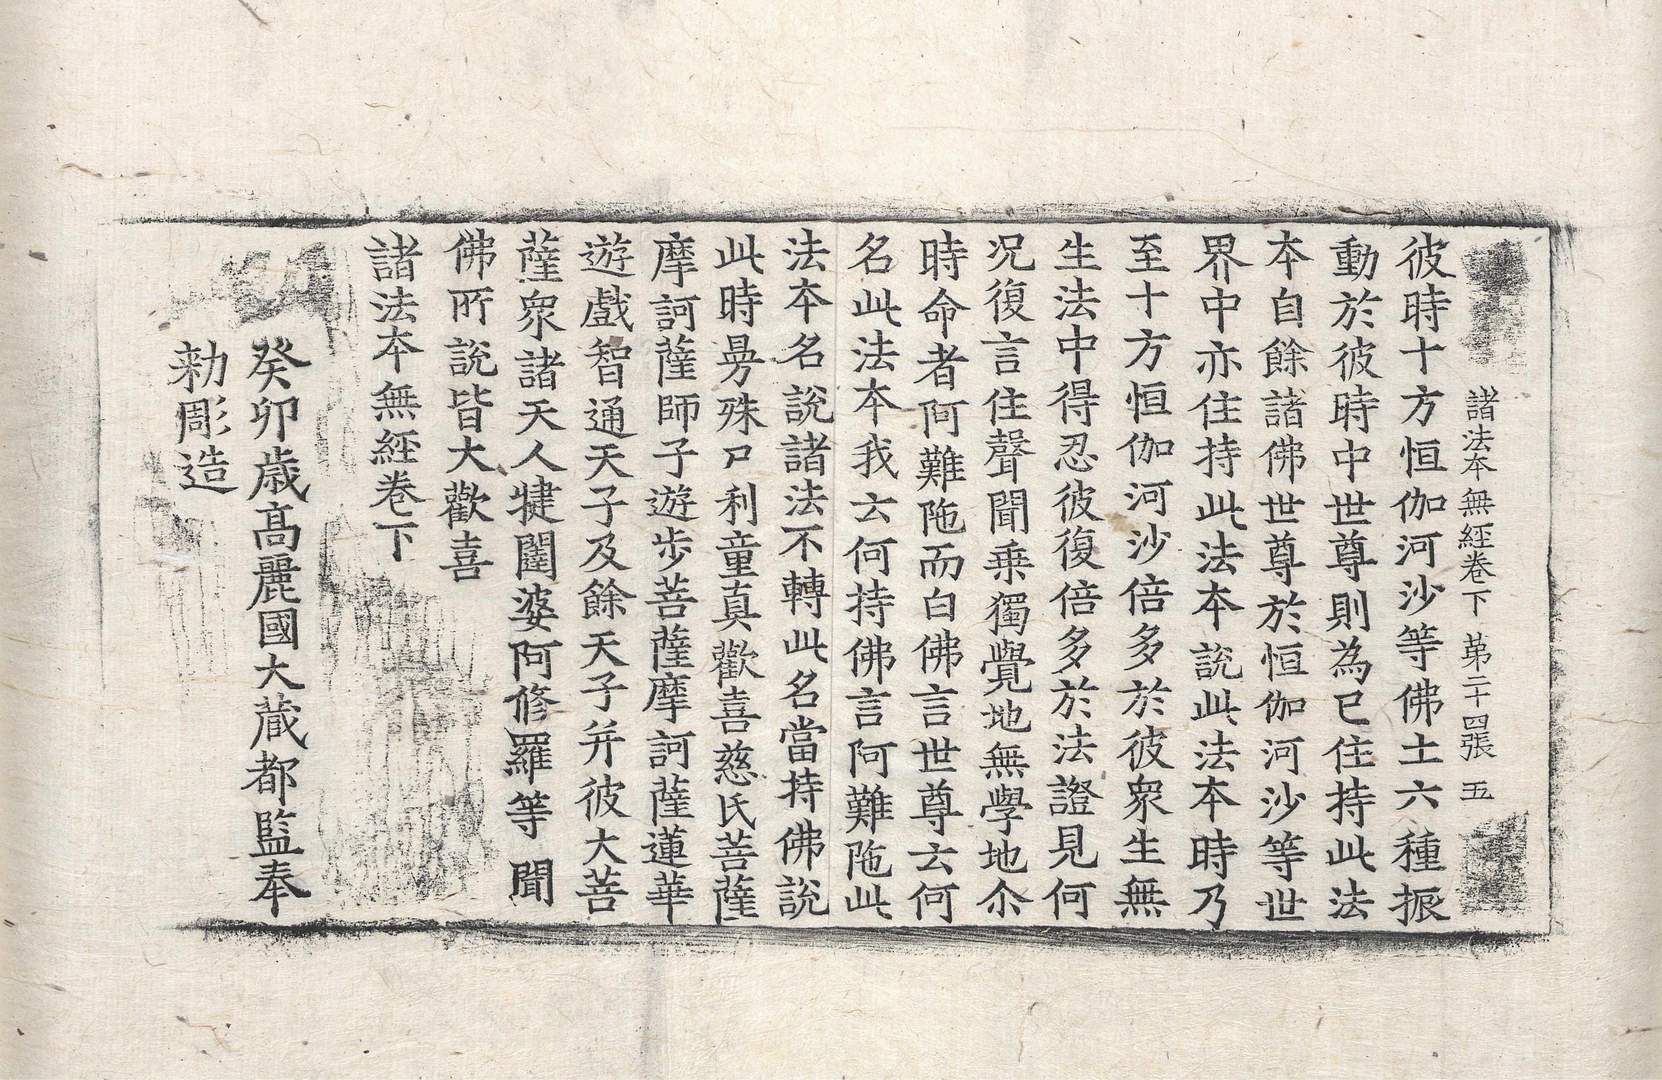 諸法本無經卷下 第二十四張 五
彼時十方恒伽河沙等佛土六種振
動於彼時中世尊則為已住持此法
本自餘諸佛世尊於恒伽河沙等世
界中亦住持此法本說此法本時乃
至十方恒伽河沙倍多於彼衆生無
生法中得忍彼復倍多於法證見何
况復言住聲聞乗獨覺地無學地尒
時命者阿難陁而白佛言世尊云何
名此法本我云何持佛言阿難陁此
法本名說諸法不轉此名當持佛說
此時曼殊尸利童真歡喜慈氏菩薩
摩訶薩師子遊步菩薩摩訶薩蓮華
遊戲智通天子及餘天子并彼大菩
薩衆諸天人犍闥婆阿修羅等聞
佛所說皆大歡喜
諸法本無經卷下
癸卯歲高麗國大藏都監奉
勑彫造